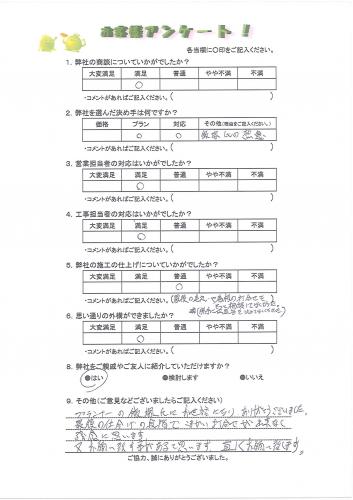 お客様アンケート!
各当欄に○印をご記入ください。
1. 弊社の商談についていかがでしたか?
大変満足 満足 普通 やや不満 不満
○
・コメントがあればご記入ください。( )
2. 弊社を選んだ決め手は何ですか?
価格 プラン 対応 その他(理由をご記入ください。)
○ ○
・コメントがあればご記入ください。( )
3. 営業担当者の対応はいかがでしたか?
大変満足 満足 普通 やや不満 不満
○
・コメントがあればご記入ください。( )
4. 工事担当者の対応はいかがでしたか?
大変満足 満足 普通 やや不満 不満
○
・コメントがあればご記入ください。( )
5. 弊社の施工の仕上げについていかがでしたか?
大変満足 満足 普通 やや不満 不満
○
・コメントがあればご記入ください。(
6. 思い通りの外構ができましたか?
大変満足 満足 普通 やや不満 不満
○
・コメントがあればご記入ください。( )
8. 弊社をご親戚やご友人に紹介していただけますか?
●はい ●検討します ●いいえ
9. その他(ご意見などございましたらご記入ください)
プランナーの 氏にお世話になりありがとうございました。
最後の仕上げの段階で 打合せが出来なく
残念に思います。
又お願い致す事があると思います 宜しくお願い致します。
ご協力、誠にありがとうございました。